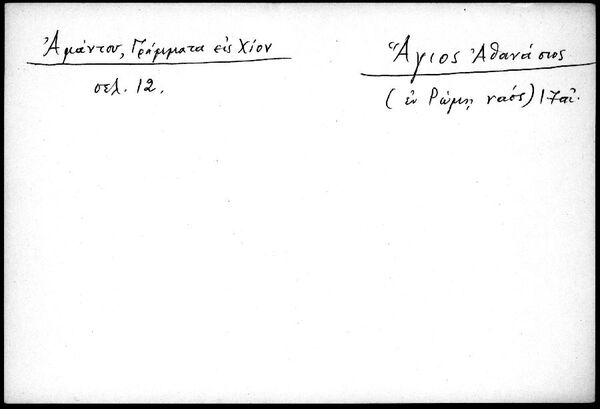 Ἀμάντου, Γράμματα εἰς Χίον
σελ. 12.
Ἅγιος Ἀθανάσιος
(ἐν Ρώμῃ ναός) 17αἰ.